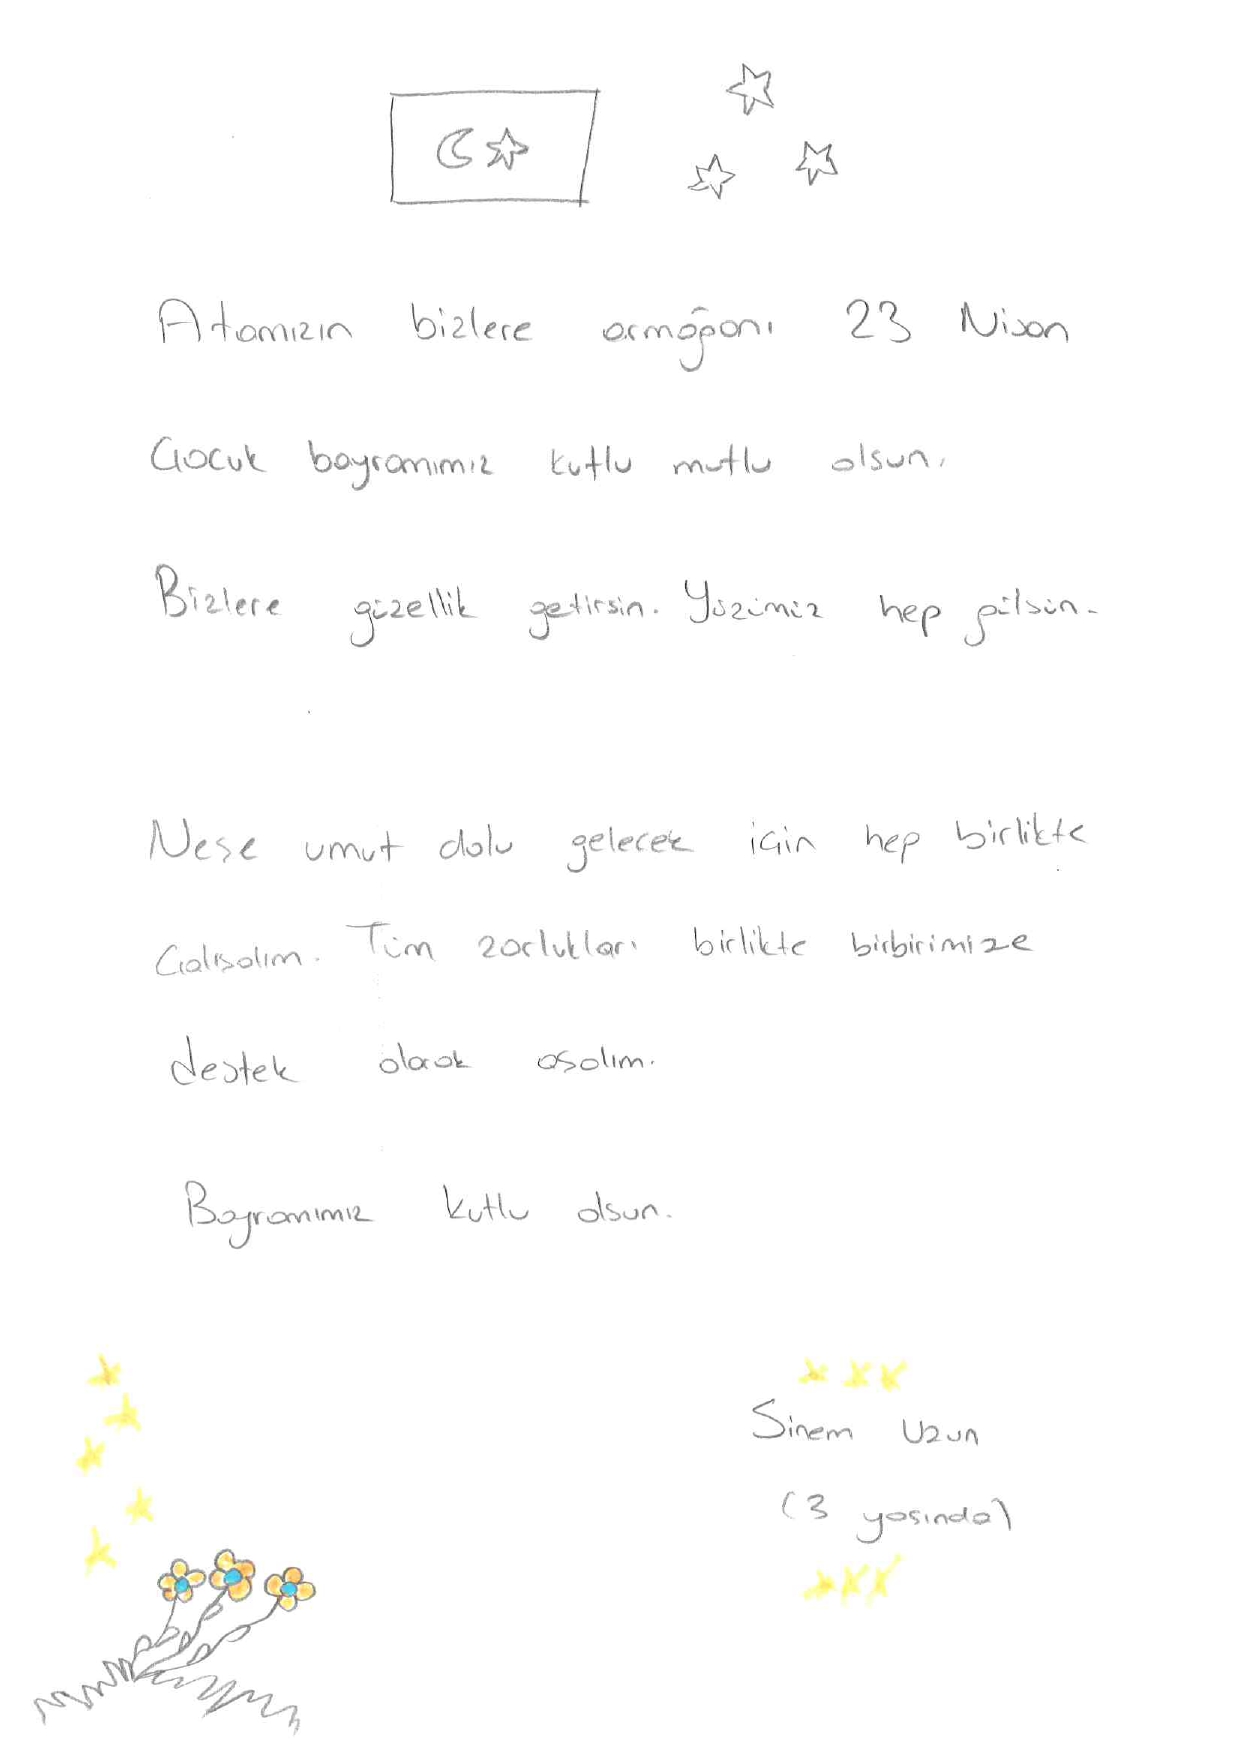 Atamızın bizlere armağanı 23 Nisan
Çocuk bayramımız kutlu mutlu olsun.
Bizlere güzellik getirsin. Yüzümüz hep gülsün.
Neşe umut dolu gelecek için hep birlikte
Çalışalım. Tüm zorlukları birlikte birbirimize
destek olarak aşalım.
Bayramımız kutlu olsun.
Sinem Uzun
(3 yaşında)